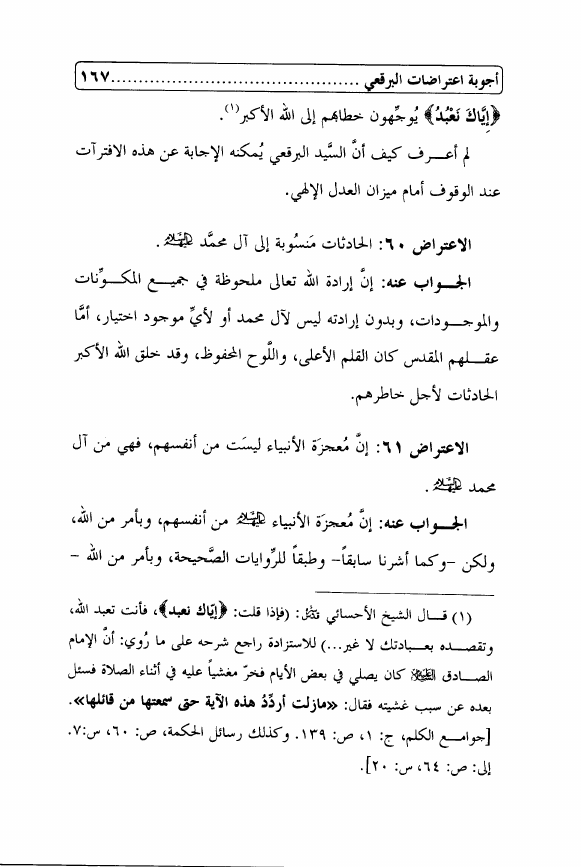 أجوبة اعتراضات البرقعي ............................................. ١٦٧
﴿إِيَّاكَ نَعْبُدُ﴾ يُوجِّهون خطابهم إلى الله الأكبر(١).
لم أعـــرف كيف أنَّ السَّيد البرقعي يُمكنه الإجابة عن هذه الافترآت
عند الوقوف أمام ميزان العدل الإلهي.
الاعتراض ٦٠: الحادثات مَنسُوبة إلى آل محمَّد عليهم السلام.
الجـــواب عنه: إنَّ إرادة الله تعالى ملحوظة في جميـــع المكـــوِّنات
والموجـــودات، وبدون إرادته ليس لآل محمد أو لأيِّ موجود اختيار، أمَّا
عقـــلهم المقدس كان القلم الأعلى، واللَّوح المحفوظ، وقد خلق الله الأكبر
الحادثات لأجل خاطرهم.
الاعتراض ٦١: إنَّ مُعجزَة الأنبياء ليسَت من أنفسهم، فهي من آل
محمد عليهم السلام.
الجـــواب عنه: إنَّ مُعجزَة الأنبياء عليهم السلام من أنفسهم، وبأمر من الله،
ولكن -وكما أشرنا سابقاً- وطبقاً للرِّوايات الصَّحيحة، وبأمر من الله -
(١) قـــال الشيخ الأحسائي قدس سره: (فإذا قلت: ﴿إيّاك نعبد﴾، فأنت تعبد الله،
وتقصـــده بعـــبادتك لا غير...) للاستزادة راجع شرحه على ما رُوي: أنَّ الإمام
الصـــادق عليه السلام كان يصلي في بعض الأيام فخرّ مغشياً عليه في أثناء الصلاة فسئل
بعده عن سبب غشيته فقال: «مازلت أردِّدُ هذه الآية حتى سمعتها من قائلها».
[جوامـــع الكلم، ج: ١، ص: ١٣٩. وكذلك رسائل الحكمة، ص: ٦٠، س:٧.
إلى: ص: ٦٤، س: ٢٠].